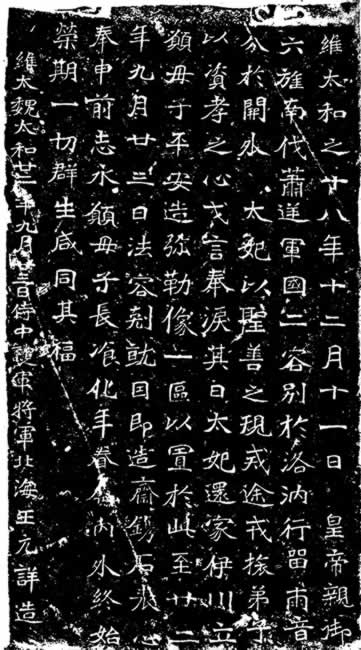 維太和之十八年十二月十一日 皇帝親御
六旌南伐蕭逆軍國二容別於洛汭行留兩音
分於闕外 太妃以聖善之規戒途戎旅弟子
以資孝之心戈言奉淚其日太妃還家伊川立
願母子平安造弥勒像一區以置於此至廿二
年九月廿三日法容剋就因即造齋鐫石表心
奉申前志永願母子長飡化年眷屬內外終始
榮期一切群生咸同其福
維太魏太和廿二年九月廿三日侍中護軍將軍北海王元詳造